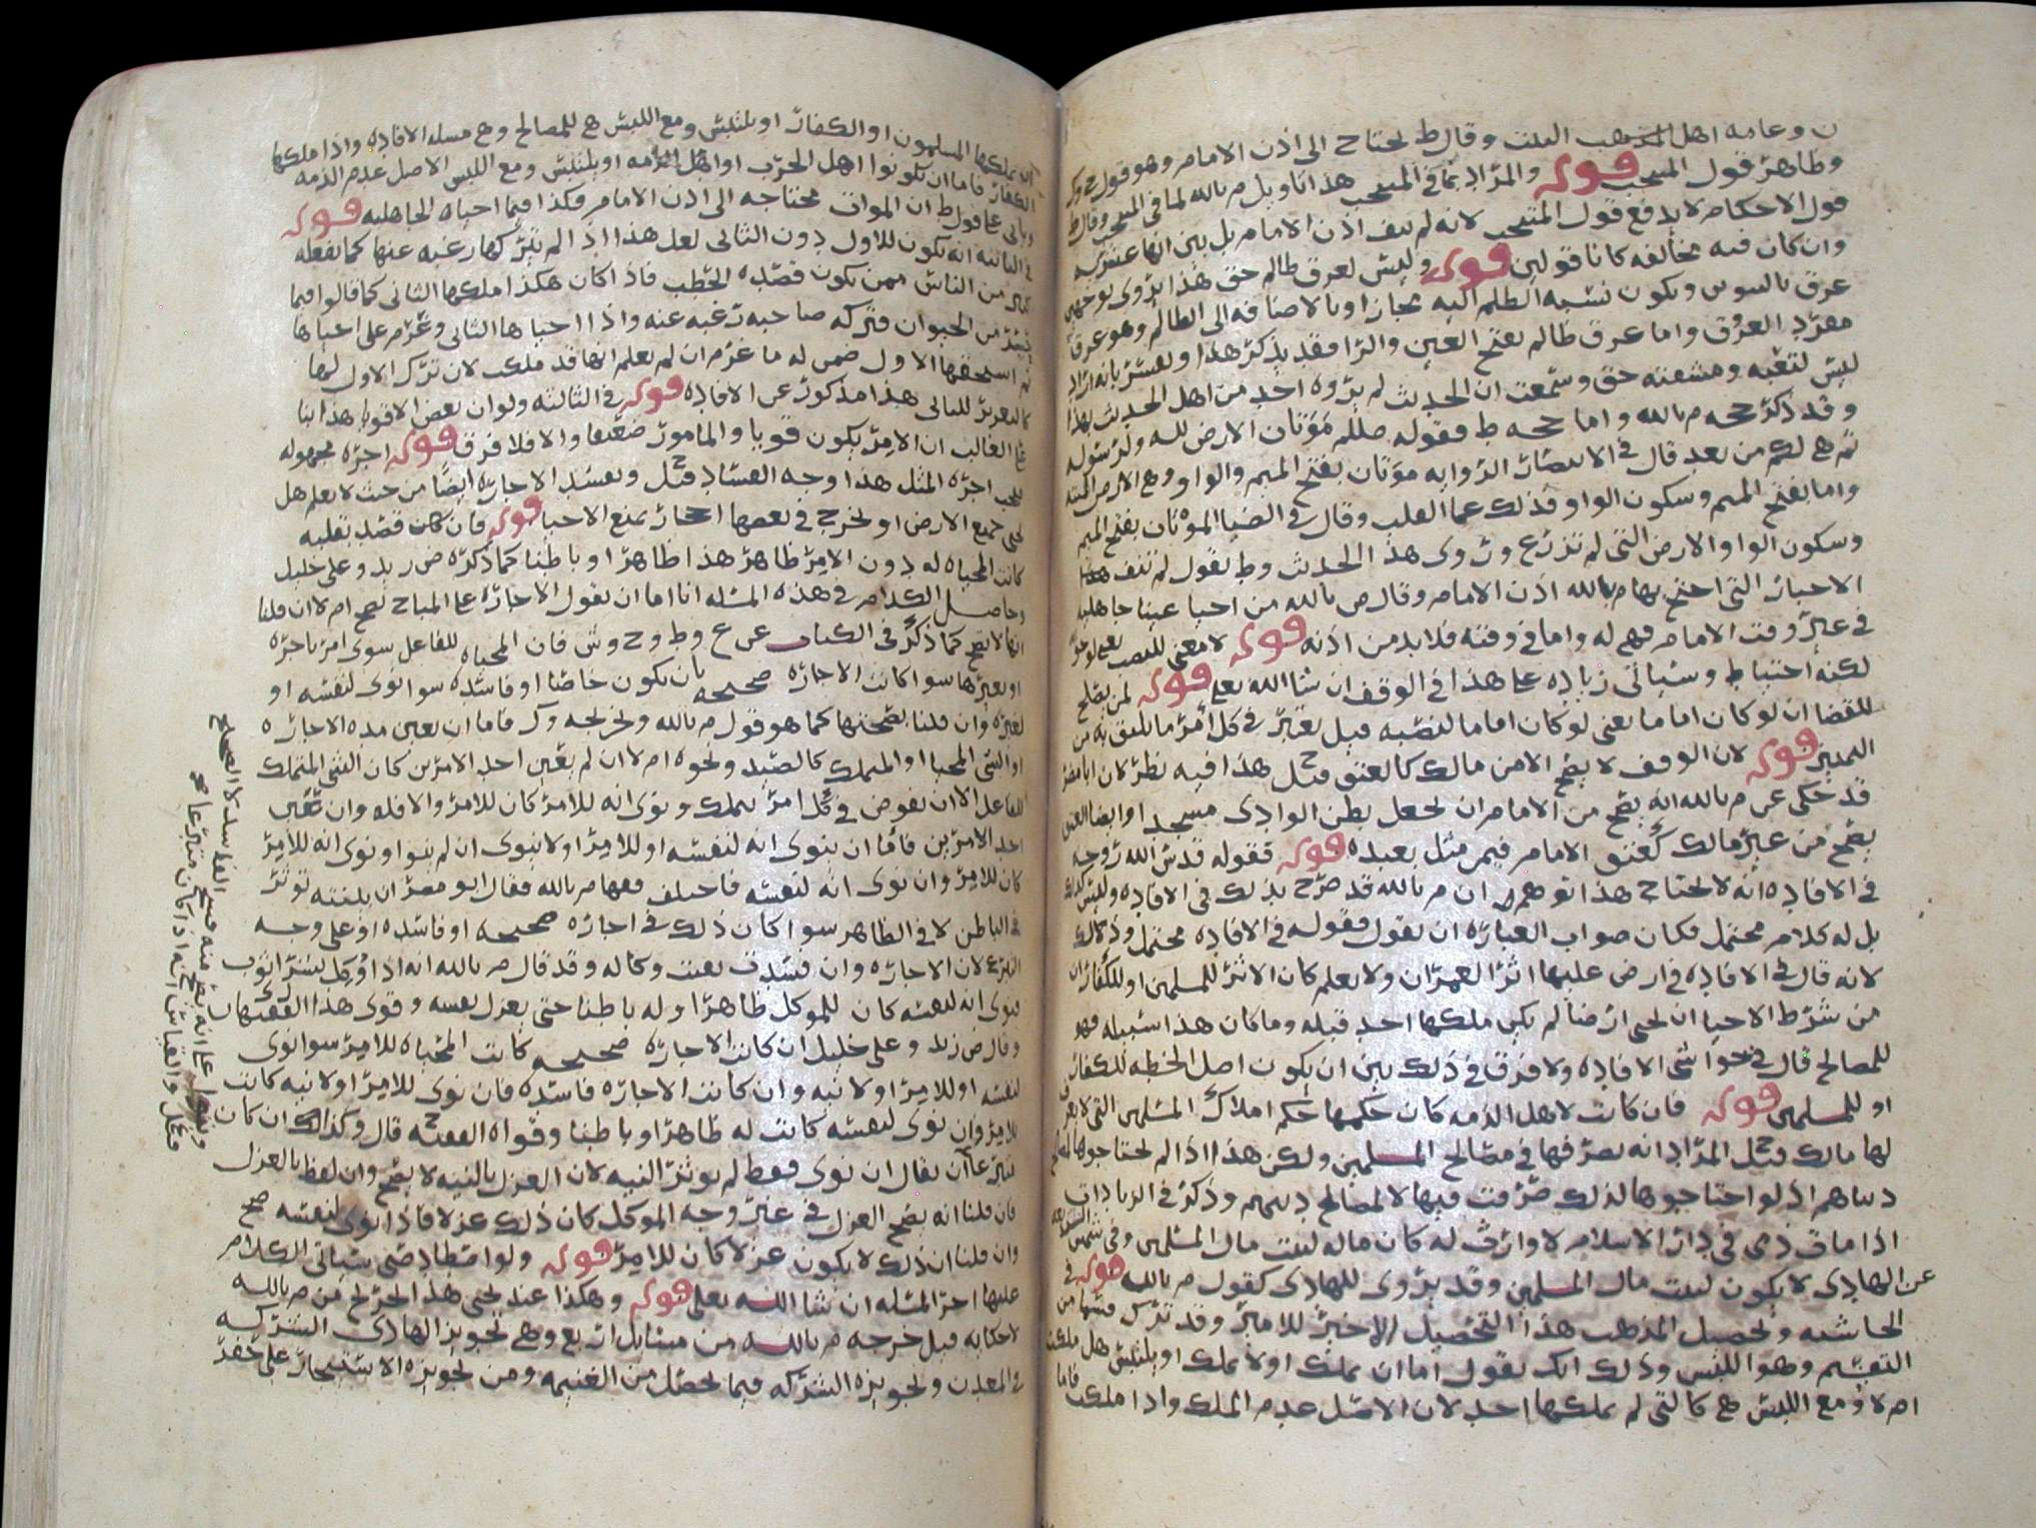 ن وعامه اهل المذهب البيت وقال ط يحتاج الى اذن الامام وهو قول ح وك
وظاهر قول المنتخب قوله والمراد بما في المنتخب هذا تاويل م بالله لما في المنتخب وقال ط
قول الاحكام لا يدفع قول المنتخب لانه لم ينف اذن الامام بل بين انها عشريه
وان كان فيه مخالفه كانا قولين قوله وليس لعرق ظالم حق هذا يروى بوجهين
عرق بالتنوين ويكون نسبه الظلم اليه مجازا وبالاضافه الى الظالم وهو عرق
مفرد العروق واما عرق ظالم بفتح العين والرا فقد يذكر هذا ويفسر بانه اراد
ليس لتعبه ومشقته حق وسمعت ان الحديث لم يروه احد من اهل الحديث بهذا
وقد ذكر حجه م بالله واما حجه ط فقوله صللم مَوَتان الارض لله ولرسوله
ثم هي لكم من بعد قال في الانتصار الروايه موتان بفتح الميم والواو وهي الارض الميته
واما بفتح الميم وسكون الواو فذلك عما القلب وقال في الضيا الموْتان بفتح الميم
وسكون الواو الارض التي لم تزرع وروى هذا الحديث وط يقول لم تنف هذه
الاخبار التي احتج بها م بالله اذن الامام وقال ص بالله من احيا عينا جاهليه
في غير وقت الامام فهي له واما في وقته فلا بد من اذنه قوله لا معنى للنصب يعني لوجوبه
لكنه احتياط وسياتي زياده على هذا في الوقف ان شا الله تعلى قوله لمن يصلح
للقضا ان لو كان اماما يعني لو كان اماما لنصبه قيل يعتبر في كل امر ما يليق به من
التمييز قوله لان الوقف لا يصح الا من مالك كالعتق قيل ح هذا فيه نظر لان ابا مضر
قد حكى عن م بالله انه يصح من الامام ان يجعل بطن الوادي مسجدا وايضا العتق
يصح من غير مالك كعتق الامام فيمن مثل بعبده قوله فقوله قدس الله روحه
في الافاده انه لا يحتاج هذا توهم ان م بالله قد صرح بذلك في الافاده وليس كذلك
بل له كلام محتمل فكان صواب العباره ان يقول فقوله في الافاده محتمل وذلك
لانه قال في الافاده في ارض عليها اثر العمران ولا يعلم كان الاثر للمسلمين او للكفار ان
من شرط الاحيا ان يحيى ارضا لم يكن ملكها احد قبله وما كان هذا سبيله فهو
للمصالح قال في حواشي الافاده ولا فرق في ذلك بين ان يكون اصل الخطه للكفار
او للمسلمين قوله فان كانت لاهل الذمه كان حكمها حكم املاك المسلمين التي لا يعرف
لها مالك قيل ح المراد انه يصرفها في مصالح المسلمين ولكن هذا اذا لم يحتاجوها لمصالح
دنياهم اذ لو احتاجوها لذلك صرفت فيها لا لمصالح دينهم وذكر في الزيادات
اذا مات ذمي في دار الاسلام لا وارث له كان ماله لبيت مال المسلمين وفي شمس الشريعه
عن الهادي لا يكون لبيت مال المسلمين وقد يروى للهادي كقول م بالله قوله في
الحاشيه وتحصيل المذهب هذا التحصيل الاخير للامير وقد ترك قسما من
التقسيم وهو اللبس وذلك انك تقول اما ان تملك او لا تملك او يلتبس هل ملكت
ام لا ومع اللبس هي كالتي لم يملكها احد لان الاصل عدم الملك واذا ملكت فاما
ان يملكها المسلمون او الكفار او يلتبس ومع اللبس هي للمصالح وهي مسله الافاده واذا ملكها
الكفار فاما ان يكونوا اهل الحرب او اهل الذمه او يلتبس ومع اللبس الاصل عدم الذمه
وياتي على قول ط ان الموات محتاجه الى اذن الامام فكذا فيما احياه الجاهليه قوله
في الثانيه انه يكون للاول دون الثاني لعل هذا اذا لم يتركها رغبه عنها كما يفعله
كثير من الناس ممن يكون قصده الحطب فاذا كان هكذا ملكها الثاني كما قالوا فيما
تعذر من الحيوان فتركه صاحبه رغبه عنه واذا احياها الثاني وغرم على احياها
ثم استحقها الاول ضمن له ما غرم ان لم يعلم انها قد ملكت لان ترك الاول لها
كالتغرير للثاني هذا مذكور عن الافاده قوله في الثالثه ولو ان بعض الاقويا هذا بنا
على الغالب ان الامر يكون قويا والمامور ضعيفا والا فلا فرق قوله اجره مجهوله
فيجب اجره المثل هذا وجه الفساد قيل ح وتفسد الاجاره ايضا من حيث لا يعلم هل
يحيي جميع الارض او يخرج في بعضها احجار يمنع الاحيا قوله فان كان قصد بقلبه
كانت المحياه له دون الامر ظاهر هذا ظاهرا وباطنا كما ذكره ص زيد وعلي خليل
وحاصل الكلام في هذه المسله انا اما ان نقول الاجاره على المباح تصح ام لا ان قلنا
انها لا تصح كما ذكر في الكتاب عن ع وط وح وش فان المحياه للفاعل سوى امر باجره
او بغيرها سوا كانت الاجاره صحيحه بان يكون خاصا او فاسده سوا نوى لنفسه او
لغيره وان قلنا بصحتها كما هو قول م بالله وتخريجه وك فاما ان يعين مده الاجاره
او الشي المحيا او المتملك كالصيد ونحوه ام لا ان لم يعين احد الامرين كان الشي المتملك
للفاعل الا ان يفوض في كل امر يتملك ونوى انه للامر كان للامر والا فله وان عين
احد الامرين فاما ان ينوى انه لنفسه او للامر او لا ينوى ان لم ينو او نوى انه للامر
كان للامر وان نوى انه لنفسه فاختلف فقها م بالله فقال ابو مضر ان بلنيته توثر
في الباطن لا في الظاهر سوا كان ذلك في اجاره صحيحه او فاسده او على وجه
التبرع لان الاجاره وان فسدت بقيت وكاله وقد قال م بالله انه اذا وُكل بشرا ثوب
فنوى انه لنفسه كان للموكل ظاهرا وله باطنا حتى يعزل نفسه وقوى هذا الفقيهان ل ي
وقال ص زيد وعلي خليل ان كانت الاجاره صحيحه كانت المحياه للامر سوا نوى
لنفسه او للامر او لا نيه وان كانت الاجاره فاسده فان نوى للامر او لا نيه كانت
للامر وان نوى لنفسه كانت له ظاهرا وباطنا وقواه الفقيه ح قال وكذلك ان كان
تبرعا ان يقال ان نوى فقط لم توثر النيه لان العزل بالنيه لا يصح وان لفظ بالعزل
فان قلنا انه يصح العزل في غير وجه الموكل كان ذلك عزلا فاذا نوى لنفسه صح
وان قلنا ان ذلك لا يكون عزلا كان للامر قوله ولو اصطاد صبي سياتي الكلام
عليها اخر المسله ان شا الله تعلى قوله وهكذا عند يحيى هذا الخرج من م بالله
لا حكايه قيل خرجه م بالله من مسايل اربع وهي تجويز الهادي الشركه
في المعدن وتجويزه الشركه فيما يحصل من الغنيمه ومن تجويزه الاستيجار على حفر
على انه يصح منه فسخ الفاسد لا الصحيح
قيل والقياس انه اذا كان متبرعا صح